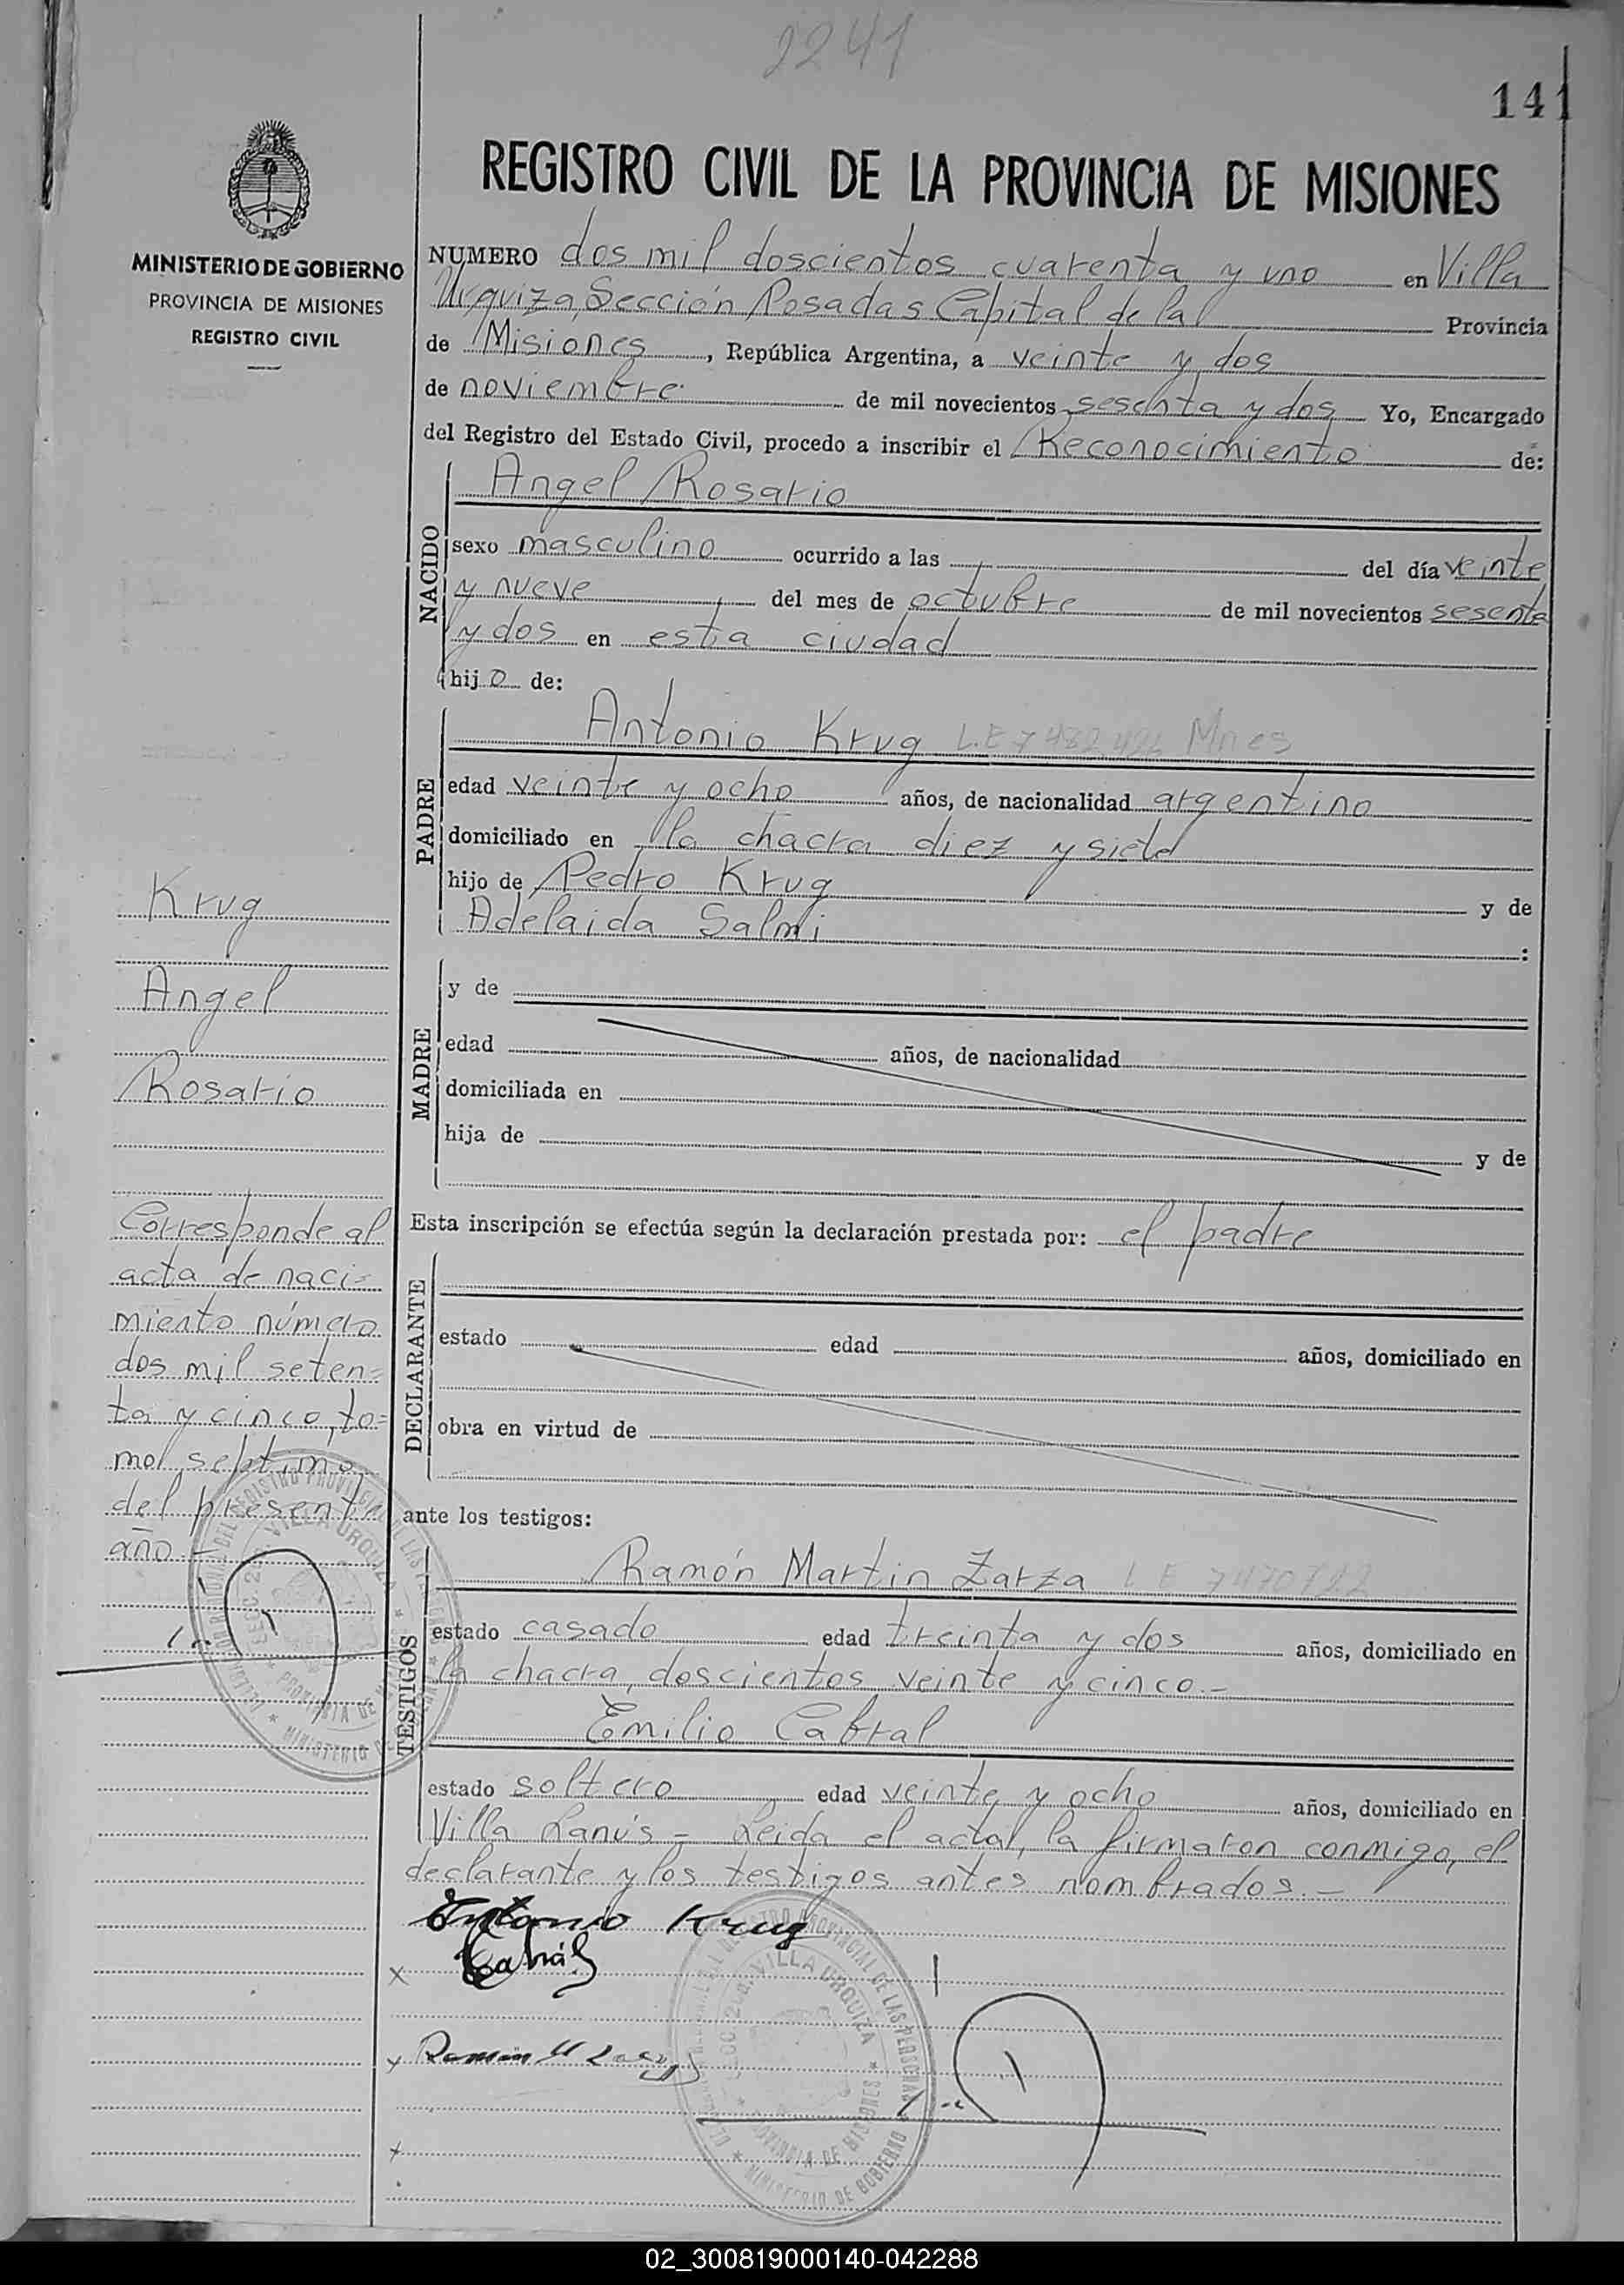 2241
141
REGISTRO CIVIL DE LA PROVINCIA DE MISIONES
MINISTERIO DE GOBIERNO
PROVINCIA DE MISIONES
REGISTRO CIVIL
NUMERO dos mil doscientos cuarenta y uno en Villa
Urquiza, Sección Posadas Capital de la Provincia
de Misiones, República Argentina, a veinte y dos
de noviembre de mil novecientos sesenta y dos Yo, Encargado
del Registro del Estado Civil, procedo a inscribir el Reconocimiento de:
NACIDO
Angel Rosario
sexo masculino ocurrido a las del día veinte
y nueve del mes de octubre de mil novecientos sesenta
y dos en esta ciudad
hijo de:
PADRE
Antonio Krug L.E 7482426 Mnes
edad veinte y ocho años, de nacionalidad argentino
domiciliado en la chacra diez y siete
hijo de Pedro Krug y de
Adelaida Salmi :
MADRE
y de
edad años, de nacionalidad
domiciliada en
hija de y de
Esta inscripción se efectúa según la declaración prestada por: el padre
DECLARANTE
estado edad años, domiciliado en
obra en virtud de
ante los testigos:
TESTIGOS
Ramón Martin Zarza L E 7470722
estado casado edad treinta y dos años, domiciliado en
la chacra doscientos veinte y cinco.-
Emilio Cabral
estado soltero edad veinte y ocho años, domiciliado en
Villa Lanús - Leida el acta, la firmaron conmigo, el
declarante y los testigos antes nombrados.-
Antonio Krug
x Cabral
x Ramón M Zarza
x
Krug
Angel
Rosario
Corresponde al
acta de naci=
miento número
dos mil seten=
ta y cinco, to=
mo septimo
del presente
año -
VILLA URQUIZA
VILLA URQUIZA
PROVINCIA DE MISIONES
MINISTERIO DE GOBIERNO
02_300819000140-042288